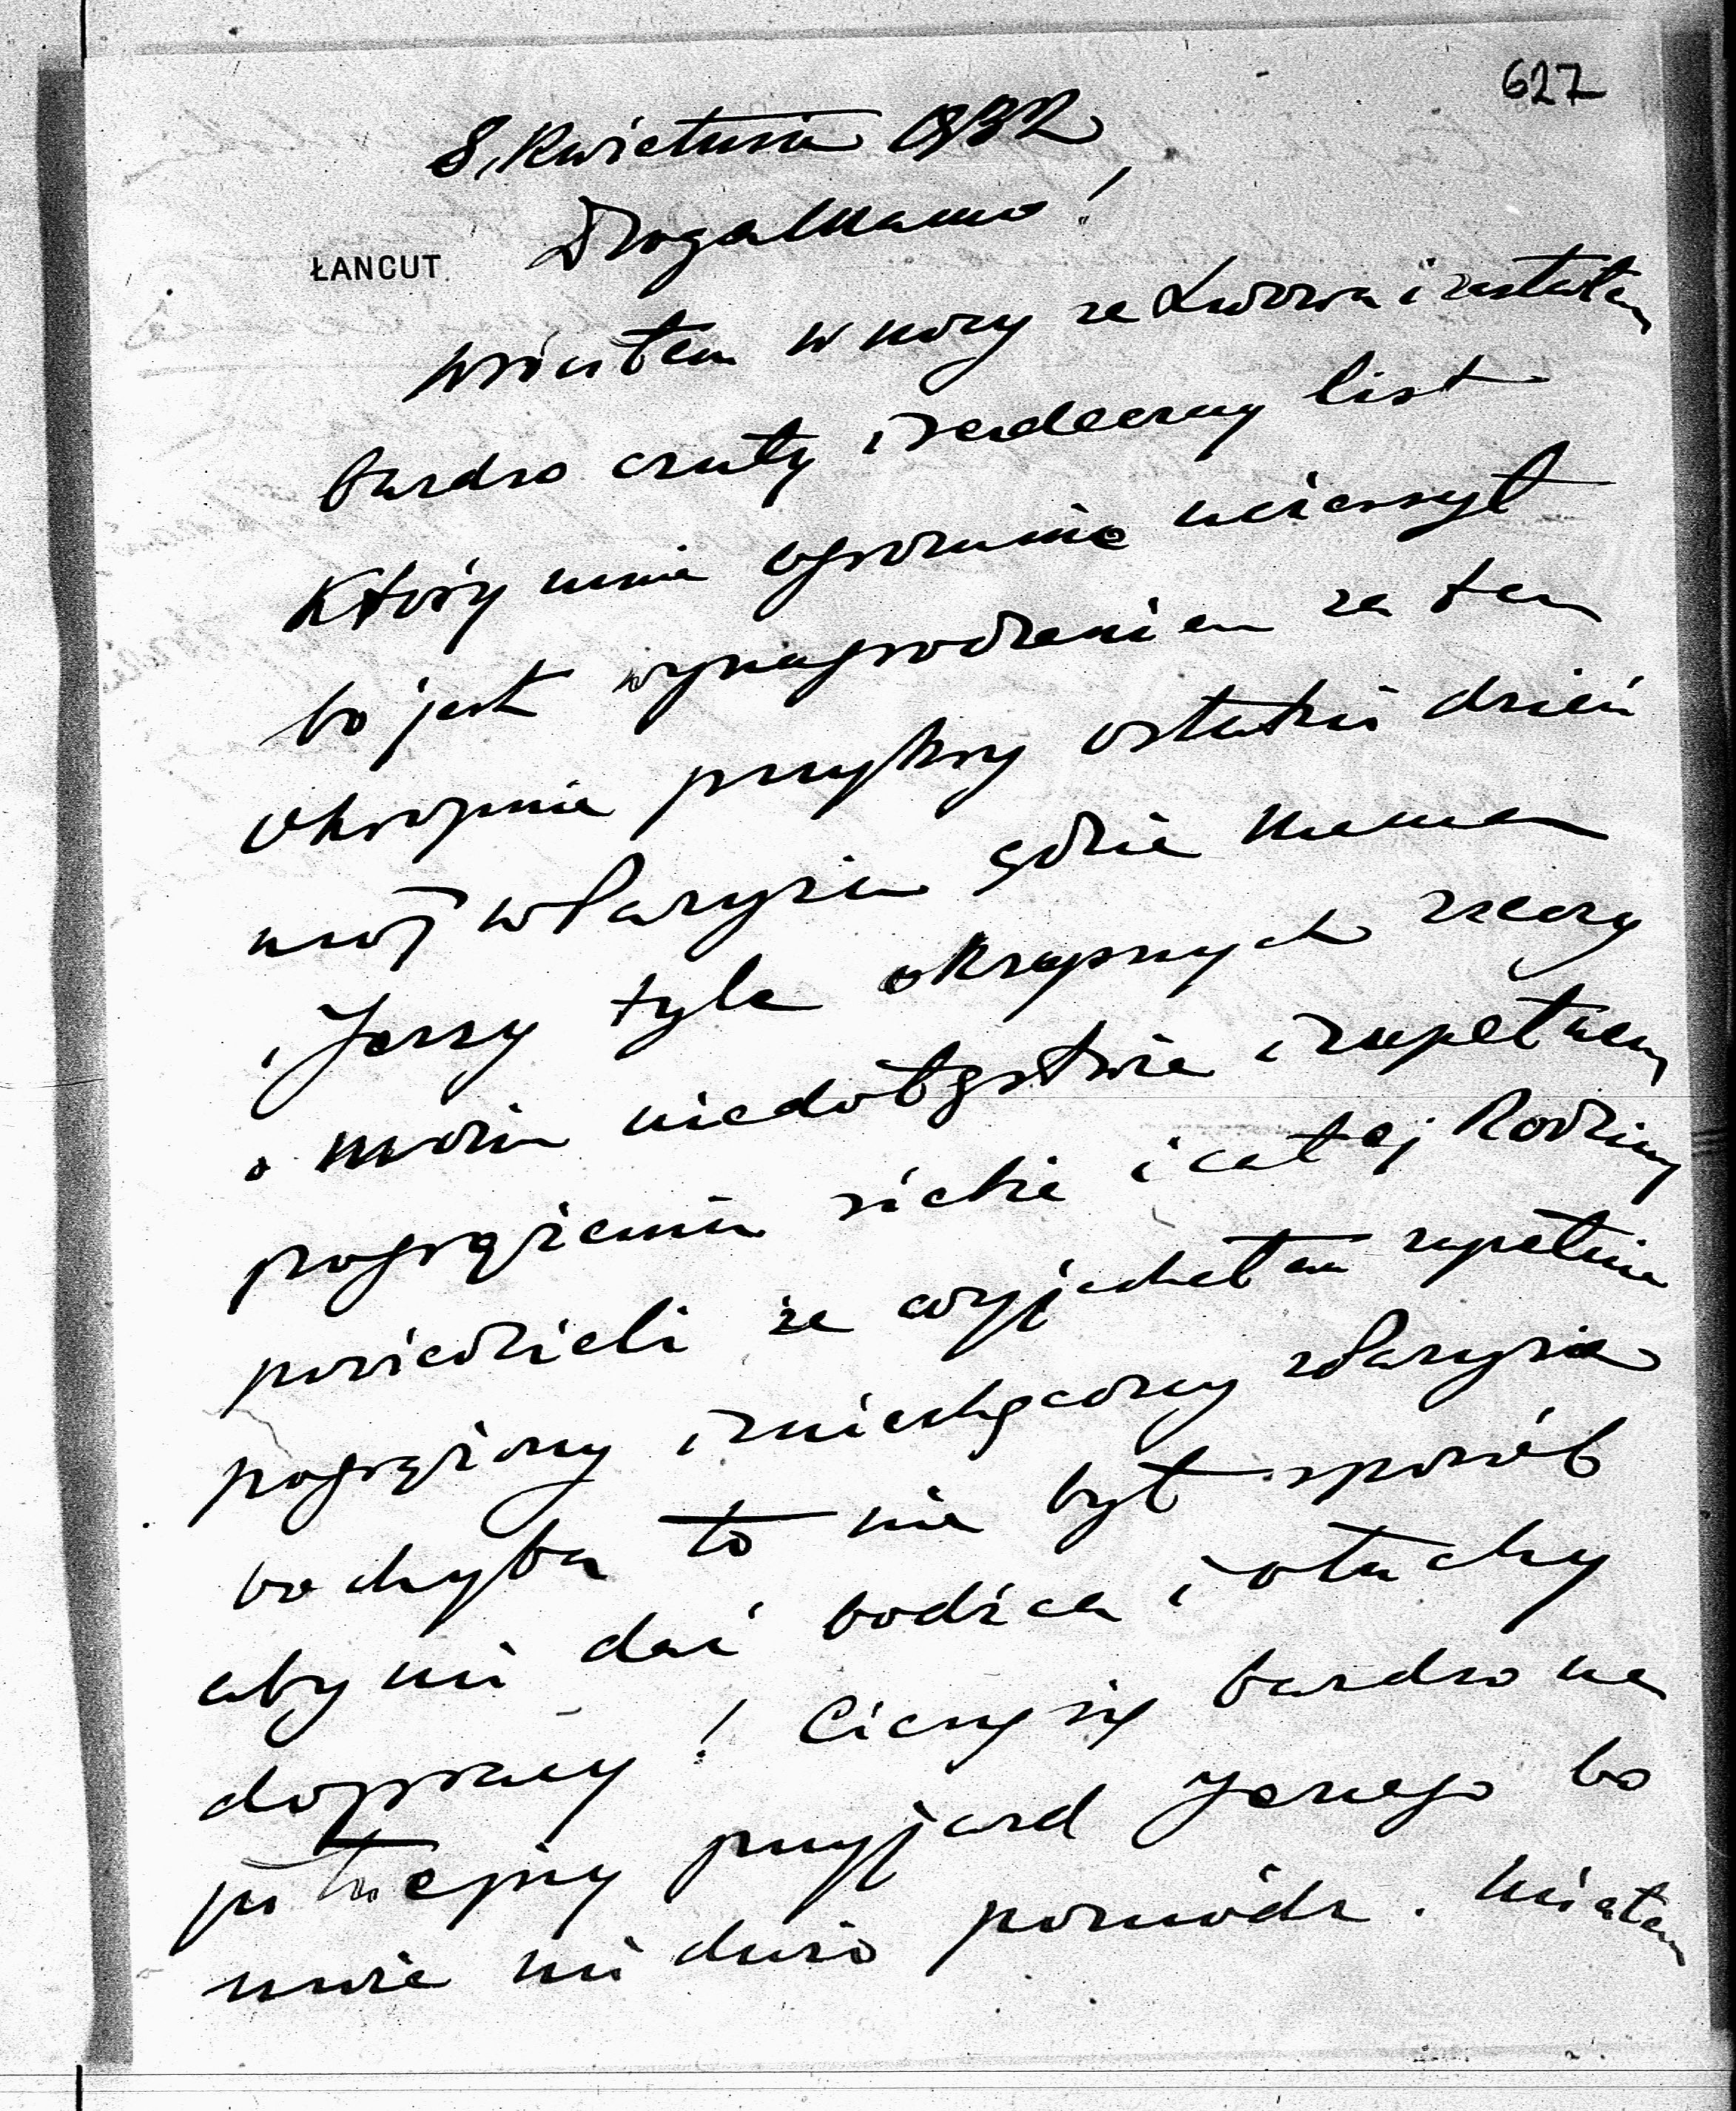 627
8. Kwietnia 1932
Droga Mamo!
ŁANCUT.
Wróciłem w nocy ze Lwowa i zastałem
bardzo czuły i serdeczny list
który mnie ogromnie ucieszył
bo jest wynagrodzeniem za ten
okropnie przykry ostatni dzień
mój w Paryżu gdzie Mama
i Jerzy tyle okropnych rzeczy
o moim niedołęstwie i zupełnem
pogrążeniu siebie i całej Rodziny
powiedzieli że wyjechałem zupełnie
pogrążony i zniechęcony z Paryża
bo chyba to nie był sposób
aby mi dać bodźca i otuchy
do pracy! Cieszę się bardzo na
przyjazd Jerzego bo
może mi dużo pomódz. Miałem